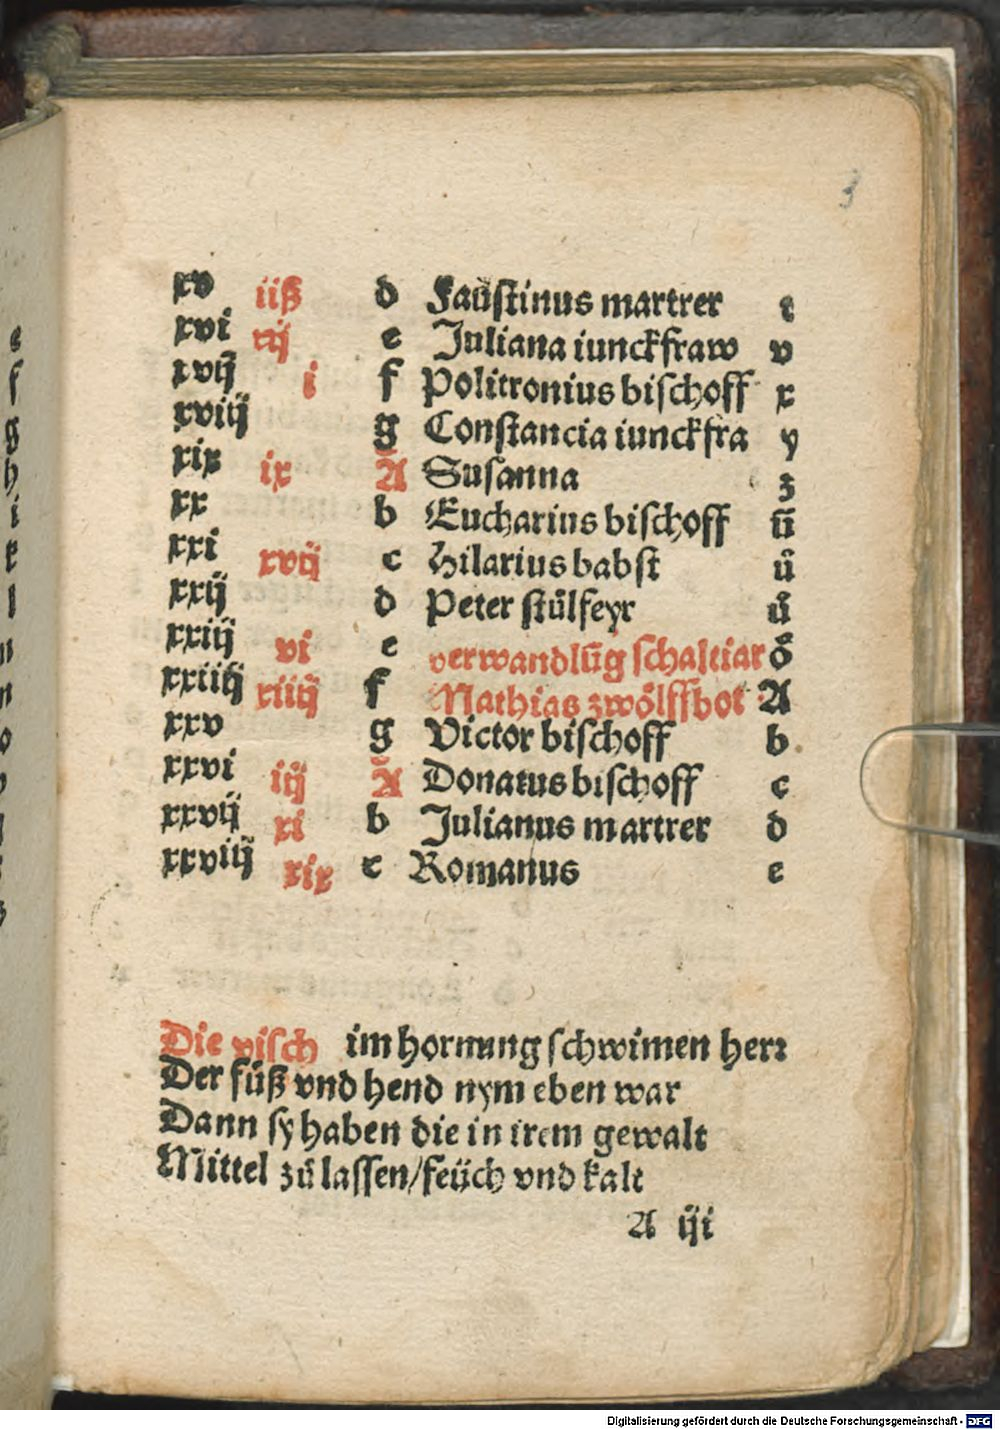 3
xv iiß d Faustinus martrer t
xvi xij e Juliana iunckfraw v
xvij i f Politronius bischoff x
xviij g Constancia iunckfra y
xix ix A Susanna z
xx b Eucharius bischoff ū
xxi xvij c Hilarius babst uͤ
xxij d Peter stůlfeyr ů
xxiij vi e verwandlūg schaltiar oͤ
xxiiij xiiij f Mathias zwoͤlffbot A
xxv g Victor bischoff b
xxvi iij A Donatus bischoff c
xxvij xi b Julianus martrer d
xxviij xix c Romanus e
Die visch im hornung schwimen herꝛ
Der fůß vnd hend nym eben war
Dann sy haben die in irem gewalt
Mittel zů lassen/feücht vnd kalt
A iij
e
f
g
h
i
k
l
n
n
o
Digitalisierung gefördert durch die Deutsche Forschungsgemeinschaft - DFG